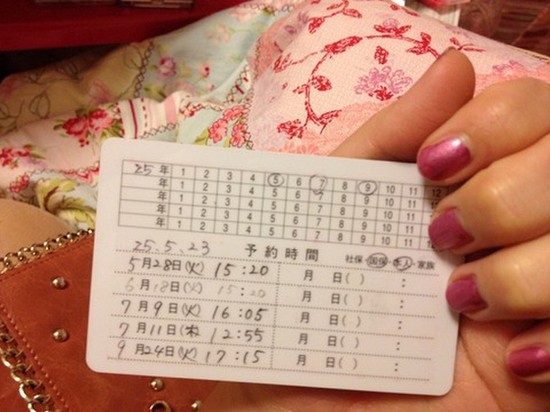 25年 1 2 3 4 5 6 7 8 9 10 11 12
年 1 2 3 4 5 6 7 8 9 10 11
年 1 2 3 4 5 6 7 8 9 10 11
年 1 2 3 4 5 6 7 8 9 10 11
年 1 2 3 4 5 6 7 8 9 10 11
25.5.23 予約時間 社保・国保・本人・家族
5月28日(火) 15:20 月 日( ) :
6月18日(火) 15:20 月 日( ) :
7月9日(火) 16:05 月 日( ) :
7月11日(木) 12:55 月 日( ) :
9月24日(火) 17:15 月 日( ) :